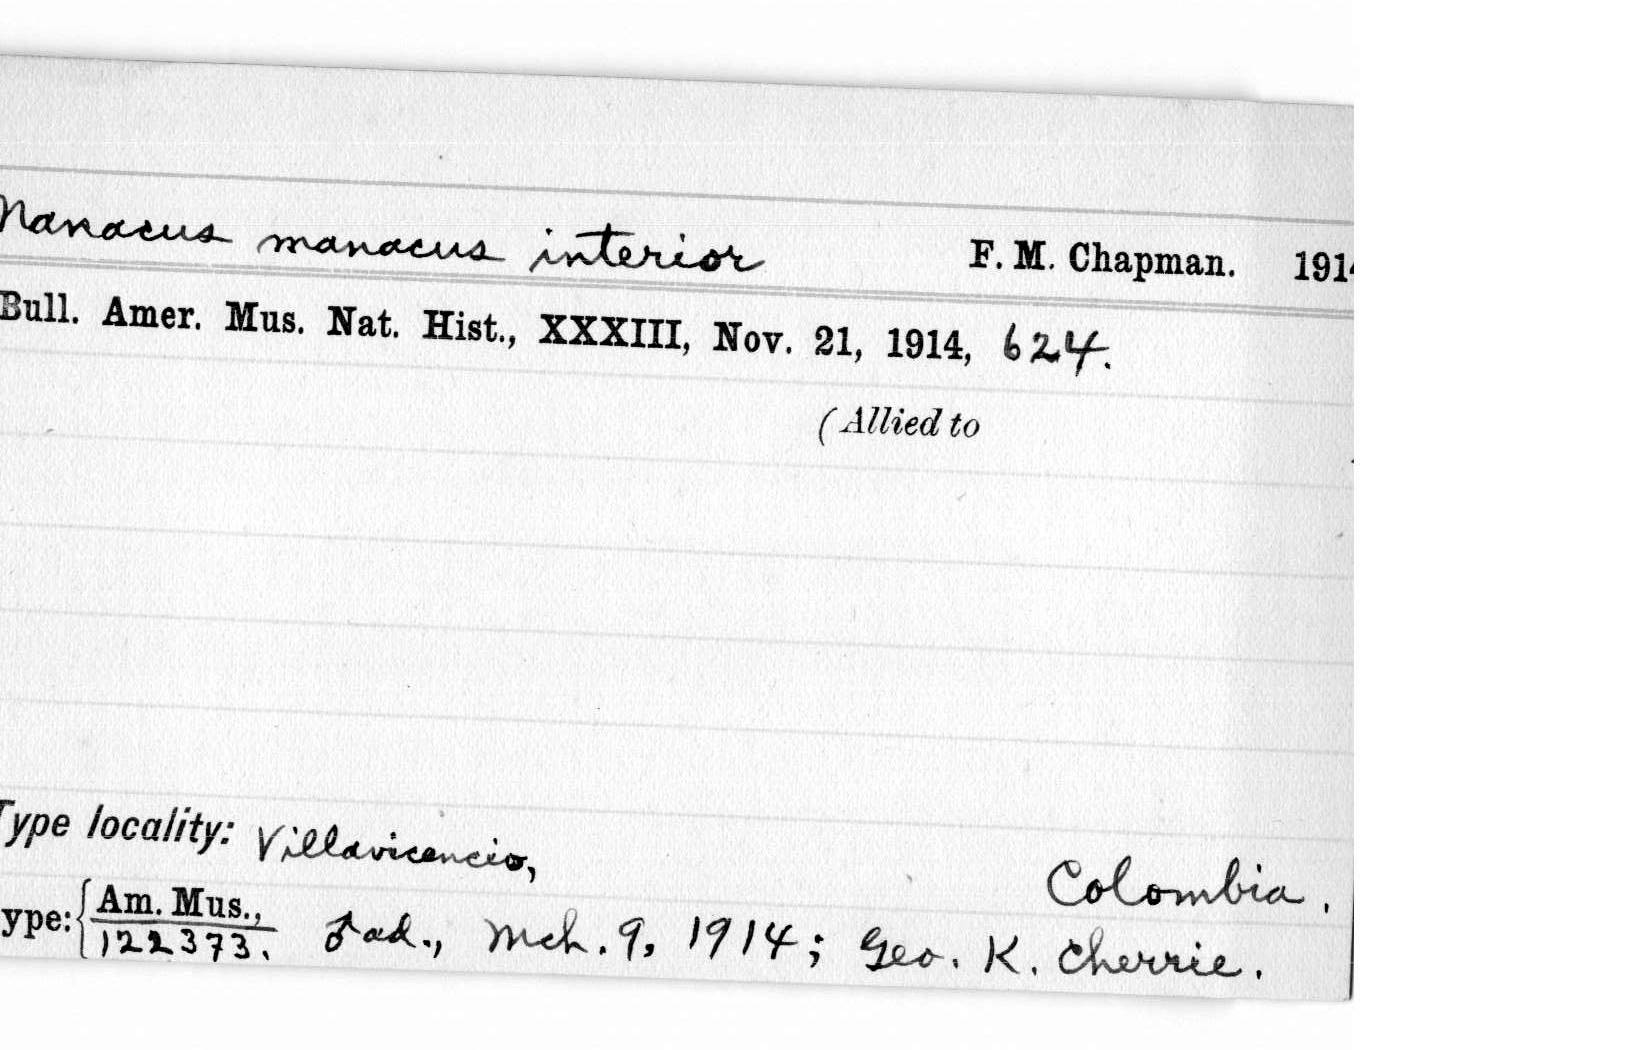 Manacus manacus interior F. M. Chapman. 1914
Bull. Amer. Mus. Nat. Hist., XXXIII, Nov. 21, 1914, 624.
(Allied to
Type locality: Villavicencio, Colombia.
ype: { Am. Mus.,
122373. ♂ ad., Mch. 9, 1914; Geo. K. Cherrie.